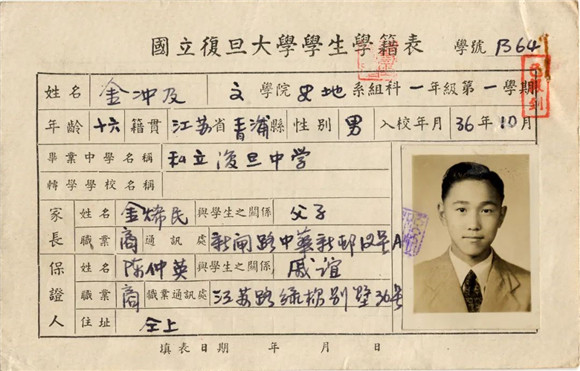 國立復旦大學學生學籍表 學號 B64
姓名 金冲及 文學院史地系組科一年級第一學期
年齡 十六 籍貫 江苏省青浦縣 性別 男 入校年月 36年10月
畢業中學名稱 私立復旦中学
轉學學校名稱
家長 姓名 金烯民 與學生之關係 父子
職業 商 通訊處 新闸路中華新邨12号A
保證人 姓名 陈仲英 與學生之關係 戚谊
職業 商 職業通訊處 江苏路绿杨别墅36号
住址 仝上
填表日期 年 月 日